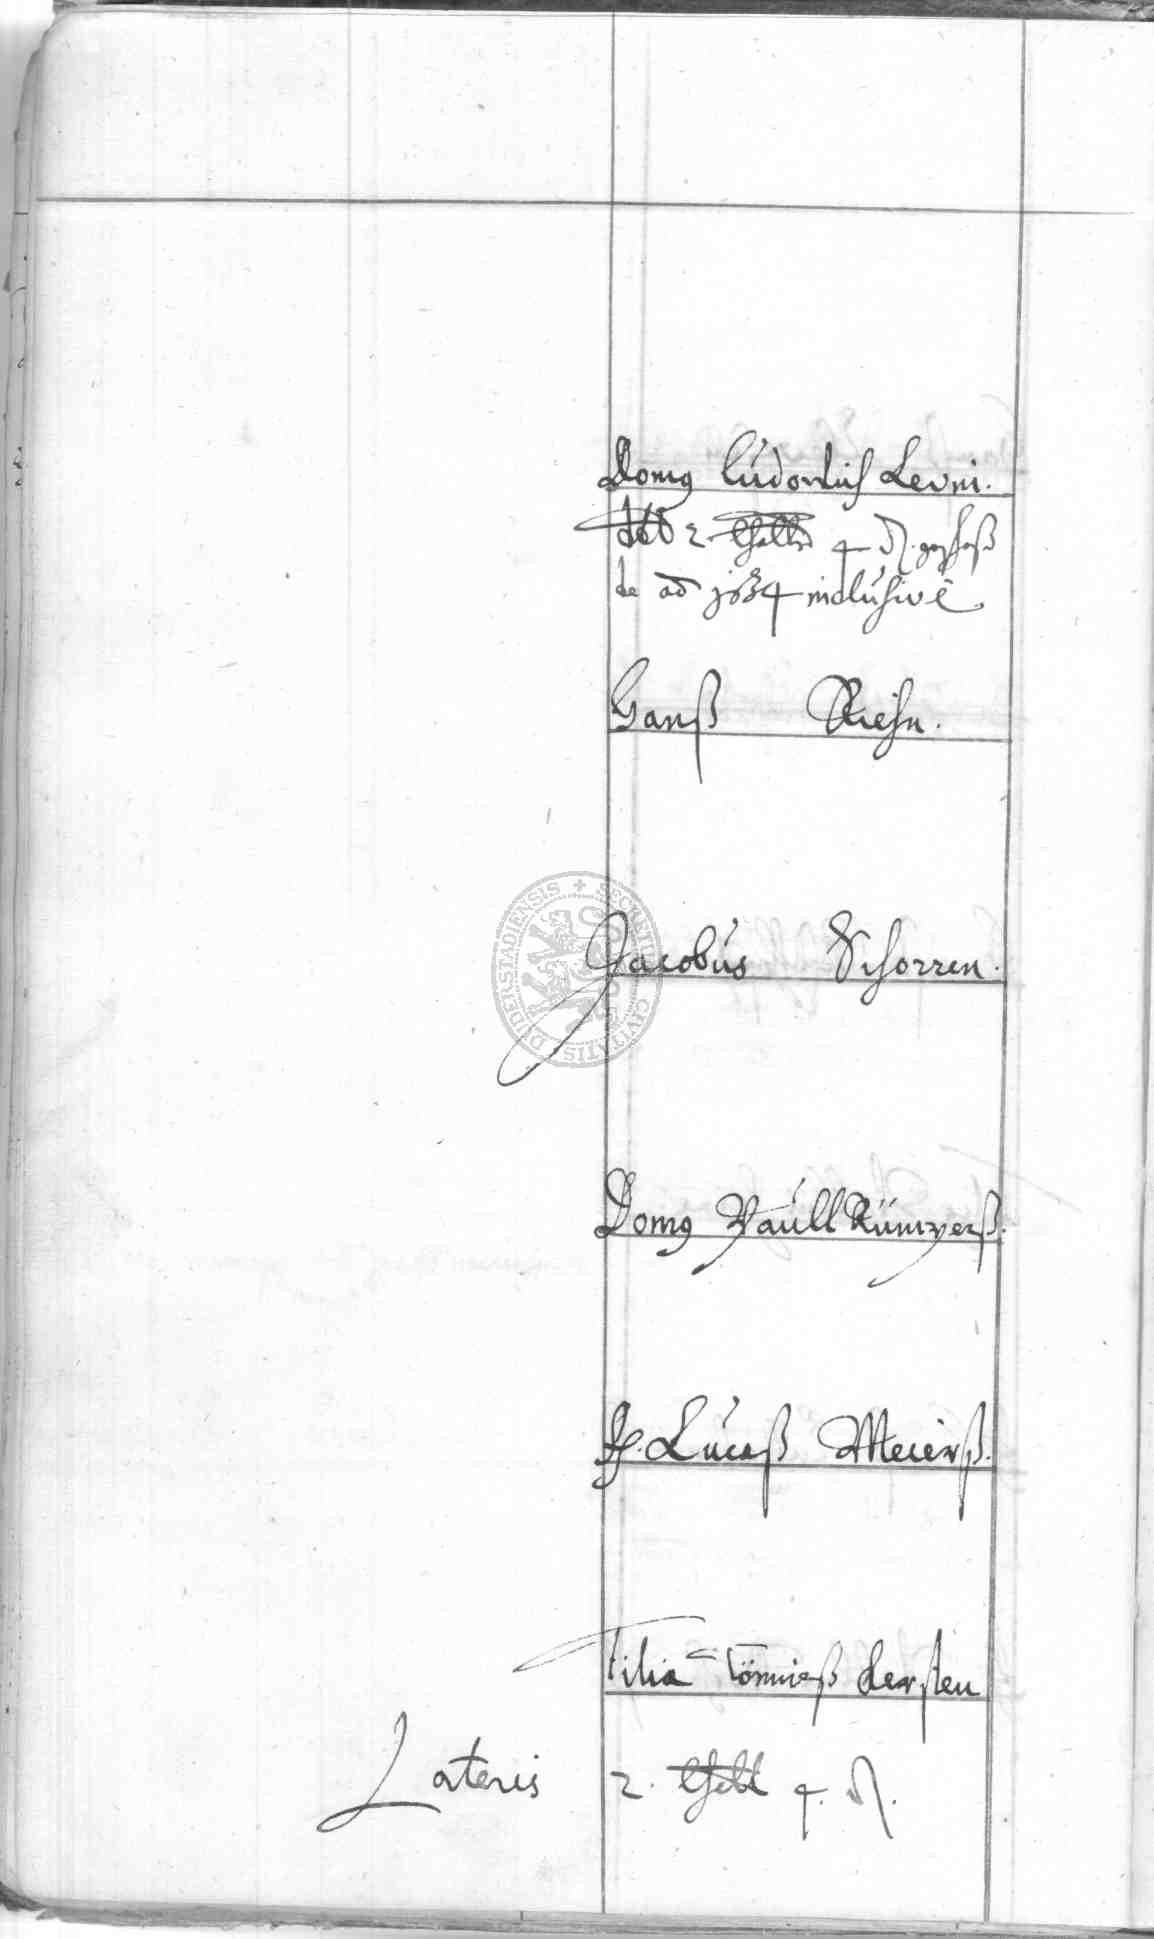 Domg Ludowich Levin.
deb 2 Schill 4 ₰. geschoß
de aō 1634 inclusivè
Hanß Riehn.
Jacobus Schorren.
Domg Paull Kümmerß.
H. Lucaß Meierß.
Filia Tönnieß Kersten
Lateris 2. Schill 4. ₰.
DVDERSTADIENSIS + SECRETV CIVITATIS